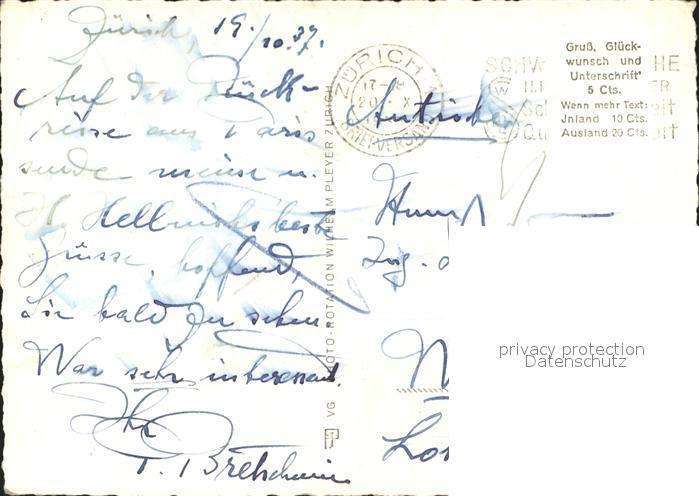 Zürich, 19./10.37.
Auf der Rück-
reise aus Paris
sende meine u.
H. Hellmichs beste
Grüsse, hoffend,
Sie bald zu sehen.
War sehr interessant.
Ihr
Bretschneider
ZÜRICH
17-18
20. X
BRIEFVERSAND
Gruß, Glück-
wunsch und
Unterschrift
5 Cts.
Wenn mehr Text:
Jnland 10 Cts.
Ausland 20 Cts.
PHOTO-ROTATION WILHELM PLEYER ZÜRICH
VG
Ing.
privacy protection
Datenschutz